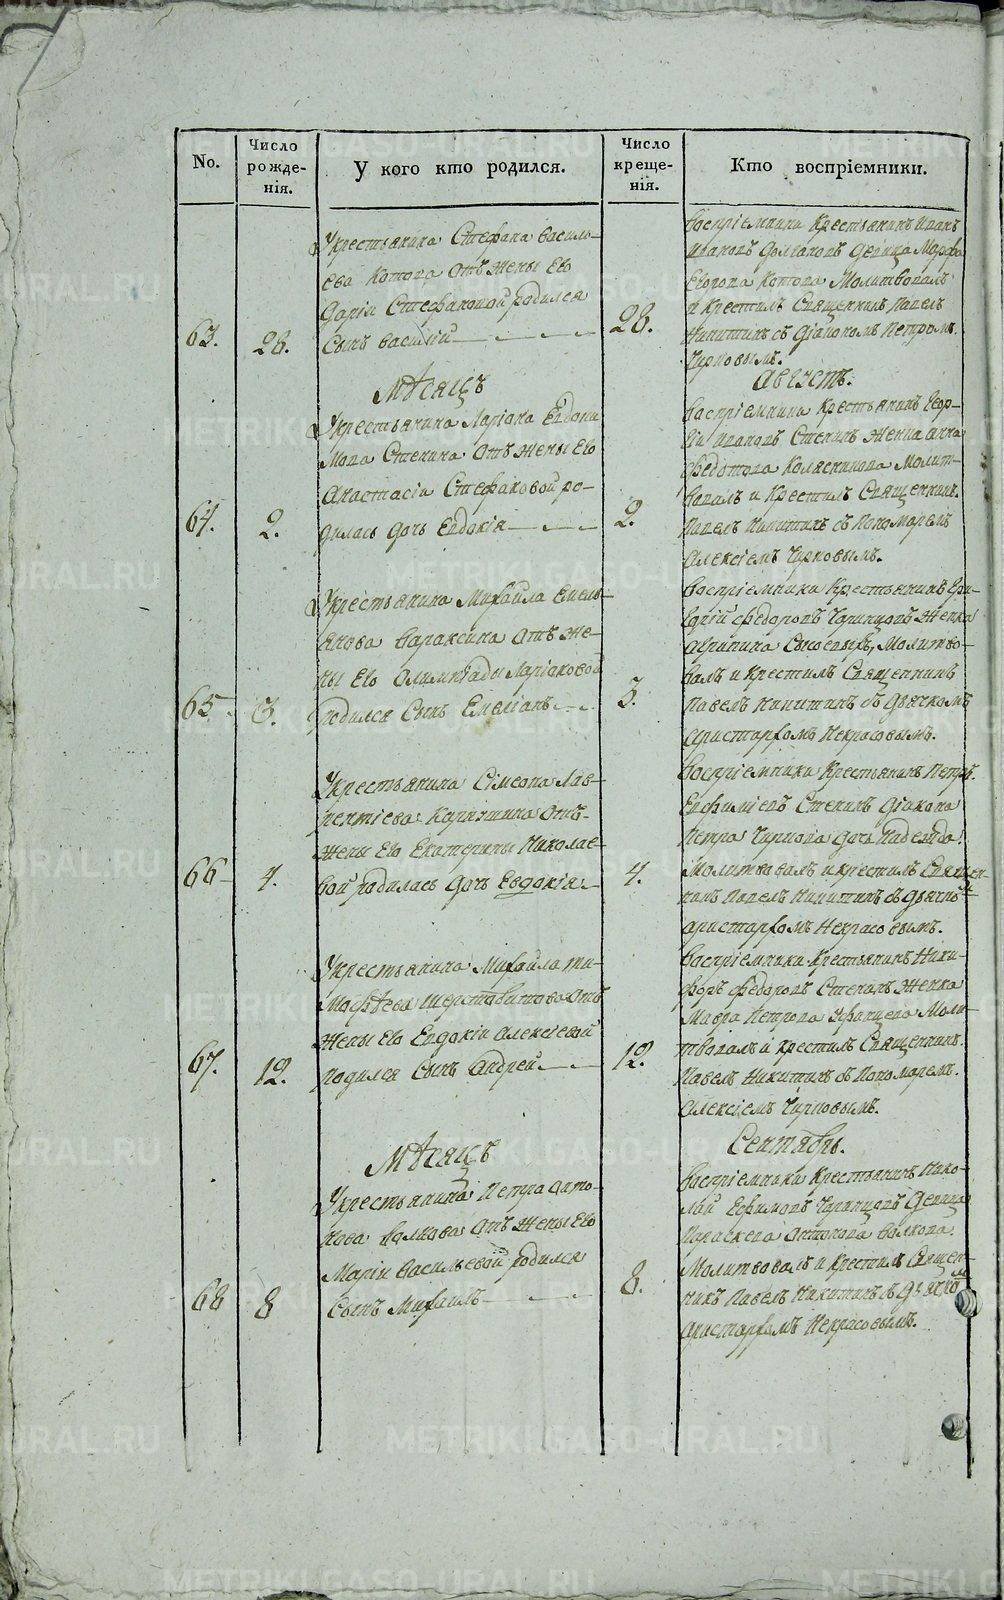 No.
Число рожде-нія.
У кого кто родился.
Число креще-нія.
Кто воспріемники.
63.
28.
У крестьянина Стефана Василь-
ева Котова отъ жены Его
Даріи Стефановой родился
Сынъ Василій
28.
воспріемники Крестьянинъ Иванъ
Ивановъ Долгановъ Девица Марфа
Егорова Котова Молитвовалъ
и Крестилъ Священникъ Павелъ
Никитинъ съ Діакономъ Петромъ
Чирковымъ.
Мѣсяцъ
Августъ.
64.
2.
У крестьянина Ларіона Евдоки
мова Стенина отъ жены Его
Анастасіи Стефановой ро-
дилась дочь Евдокія
2.
воспріемники крестьянинъ Геор-
гій Ивановъ Стенинъ женка Анна
Федотова Колясникова Молит-
вовалъ и Крестилъ Священникъ
Павелъ Никитинъ съ Пономаремъ
Алексіемъ Чирковымъ.
65
3.
У крестьянина Михайла Емель-
янова Вараксина отъ же-
ны Его Олимпіады Ларіоновой
родился Сынъ Емеліанъ
3.
воспріемники Крестьянинъ
Федоровъ женка
Агрипина Молитво-
валъ и Крестилъ Священникъ
Павелъ Никитинъ съ Дьячкомъ
Аристархомъ Некрасовымъ.
66
4.
У крестьянина Сімеона Лав-
рентіева отъ
жены Его Екатерины Николае-
вой родилась дочь Евдокія
4.
воспріемники Крестьянинъ Петръ
Евфиміевъ Стенинъ Діакона
Петра Чиркова дочь Надежда.
Молитвовалъ и крестилъ Священ-
никъ Павелъ Никитинъ съ Дьячко
мъ
Аристархомъ Некрасовымъ.
67.
12.
У крестьянина Михайла Ти-
мофѣева Шерстобитова отъ
жены Его Евдокіи Алексіевой
родился Сынъ Андрей
12.
воспріемники Крестьянинъ Ники-
форъ Федоровъ Стенинъ женка
Мавра Петрова Моли-
твовалъ и крестилъ Священникъ
Павелъ Никитинъ съ Пономаремъ
Алексіемъ Чирковымъ.
Мѣсяцъ
Сентябрь.
68
8
У крестьянина Петра Анто-
нова Волкова отъ жены Его
Маріи Васильевой родился
Сынъ Михаилъ
8.
воспріемники Крестьянинъ Нико-
лай Ефимовъ Девица
Параскева Антонова Волкова.
Молитвовалъ и Крестилъ Священ-
никъ Павелъ Никитинъ съ Дьячко
мъ
Аристархомъ Некрасовымъ.
METRIKI.GASO-URAL.RU